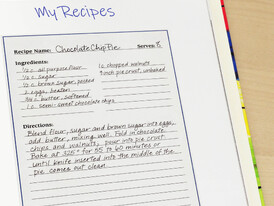 My Recipes
Recipe Name: Chocolate Chip Pie Serves: 8
Ingredients:
1/2 c. all purpose flour 1 c. chopped walnuts
1/2 c. sugar 9 inch pie crust, unbaked
1/2 c. brown sugar, packed
2 eggs, beaten
3/4 c. butter, softened
1 c. semi-sweet chocolate chips
Directions:
Blend flour, sugar and brown sugar into eggs,
add butter, mixing well. Fold in chocolate
chips and walnuts, pour into pie crust.
Bake at 325° for 55 to 60 minutes or
until knife inserted into the middle of the
pie comes out clean.